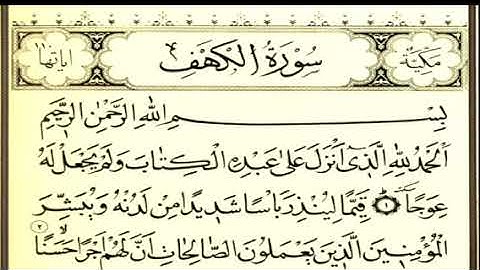 مكية سورة الكهف اياتها
بسم الله الرحمن الرحيم
الحمد لله الذي انزل على عبده الكتاب ولم يجعل له
عوجا ۝ قيما لينذر باسا شديدا من لدنه ويبشر
المؤمنين الذين يعملون الصالحات ان لهم اجرا حسنا ٢